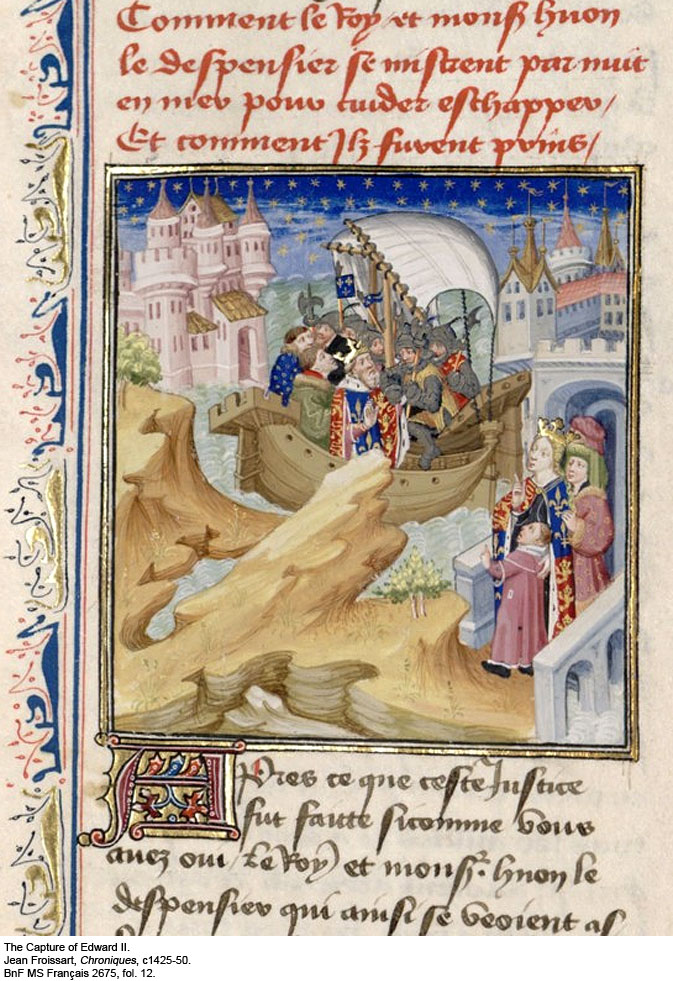 Comment le Roy et mons͛ huon
le despensier se mistrent par nuit
en mer pour cuider eschapper /
Et comment Ilz furent prins /
Apres ce que ceste Iustice
fut faitte sicomme vous
auez oui / le Roy et mons͛ huon le
despensier qui ainsi se veoient as
The Capture of Edward II.
Jean Froissart, Chroniques, c1425-50.
BnF MS Français 2675, fol. 12.